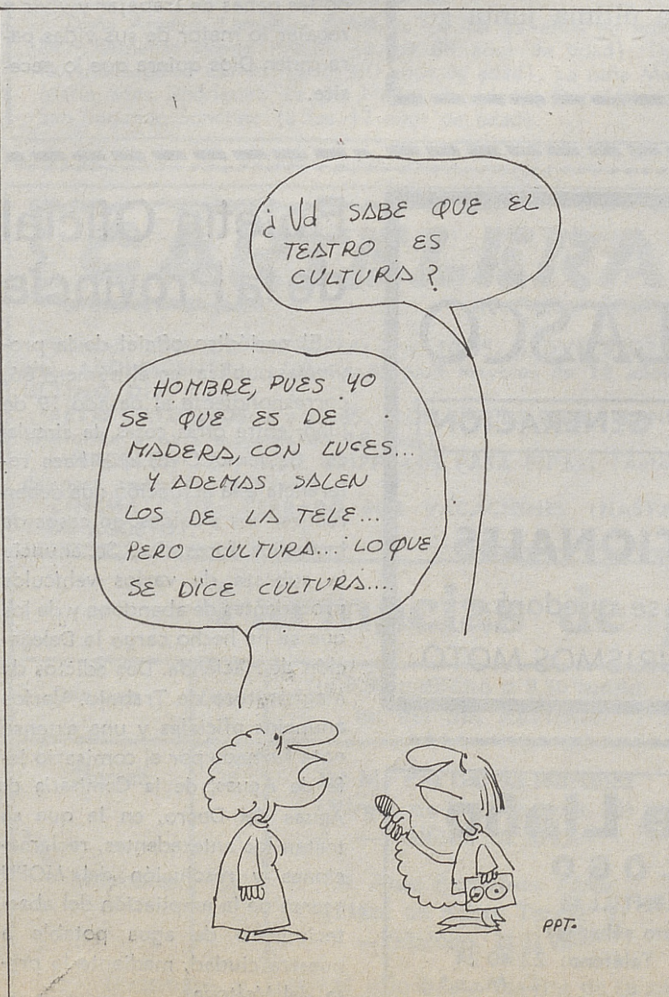 ¿Vd SABE QUE EL
TEATRO ES
CULTURA?
HOMBRE, PUES YO
SE QUE ES DE
MADERA, CON LUCES...
Y ADEMAS SALEN
LOS DE LA TELE...
PERO CULTURA... LO QUE
SE DICE CULTURA...
PPT.